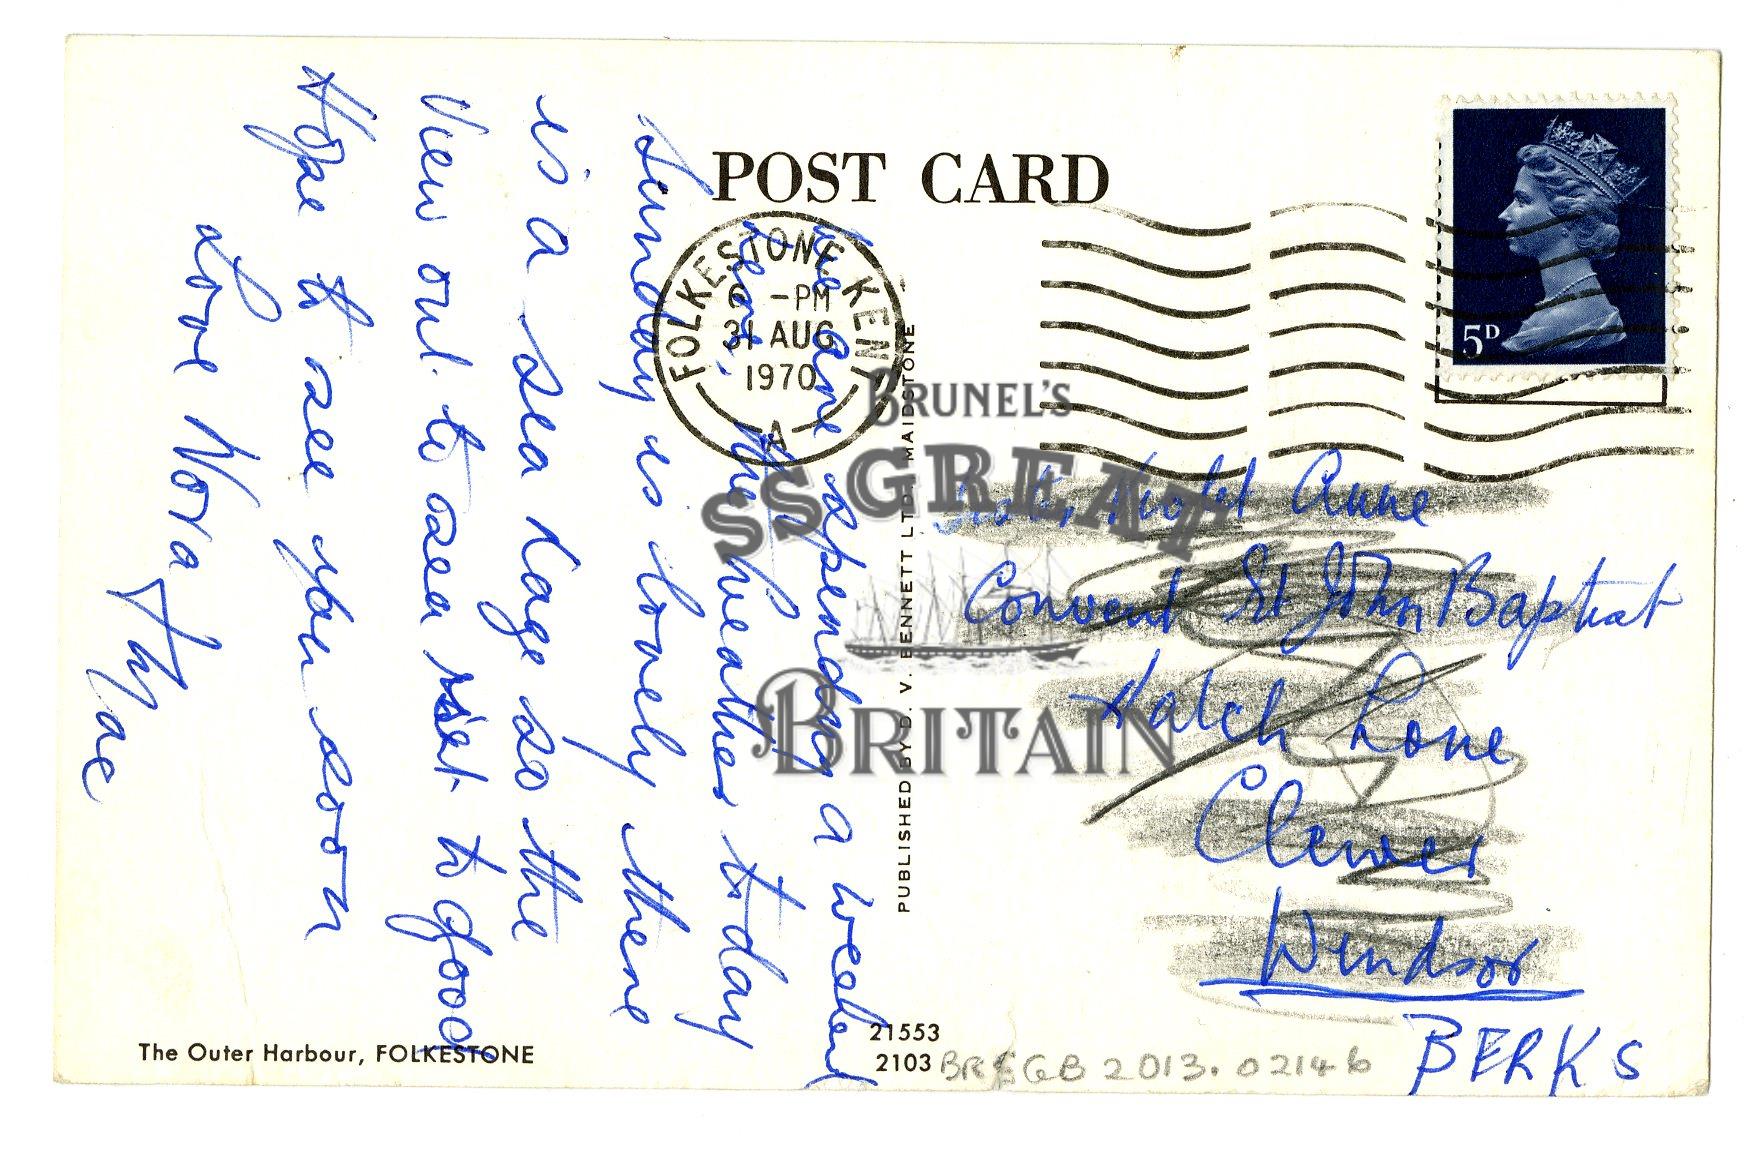 POST CARD
FOLKESTONE KENT
6 -PM
31 AUG
1970
A
5D
We are spending a weekend
here, the weather today
Sunday is lovely there
is a sea haze so the
View out to sea is
not to good
Hope to see you soon
Love Nora
Violet Anne
Convent St John Baptist
Hatch Lane
Clewer
Windsor
BERKS
PUBLISHED BY D. V. BENNETT LTD., MAIDSTONE
BRUNEL'S
SS GREAT
BRITAIN
The Outer Harbour, FOLKESTONE
21553
2103
BRSGB 2013.02146